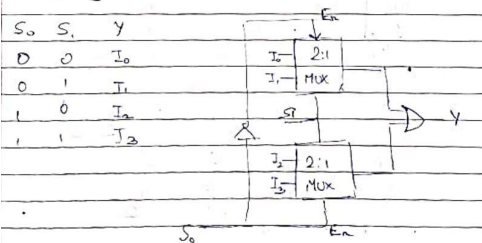 S₀ S₁ Y
0 0 I₀
0 1 I₁
1 0 I₂
1 1 I₃
En
I₀ 2:1
I₁ MUX
S1
Y
I₂ 2:1
I₃ MUX
S₀ En